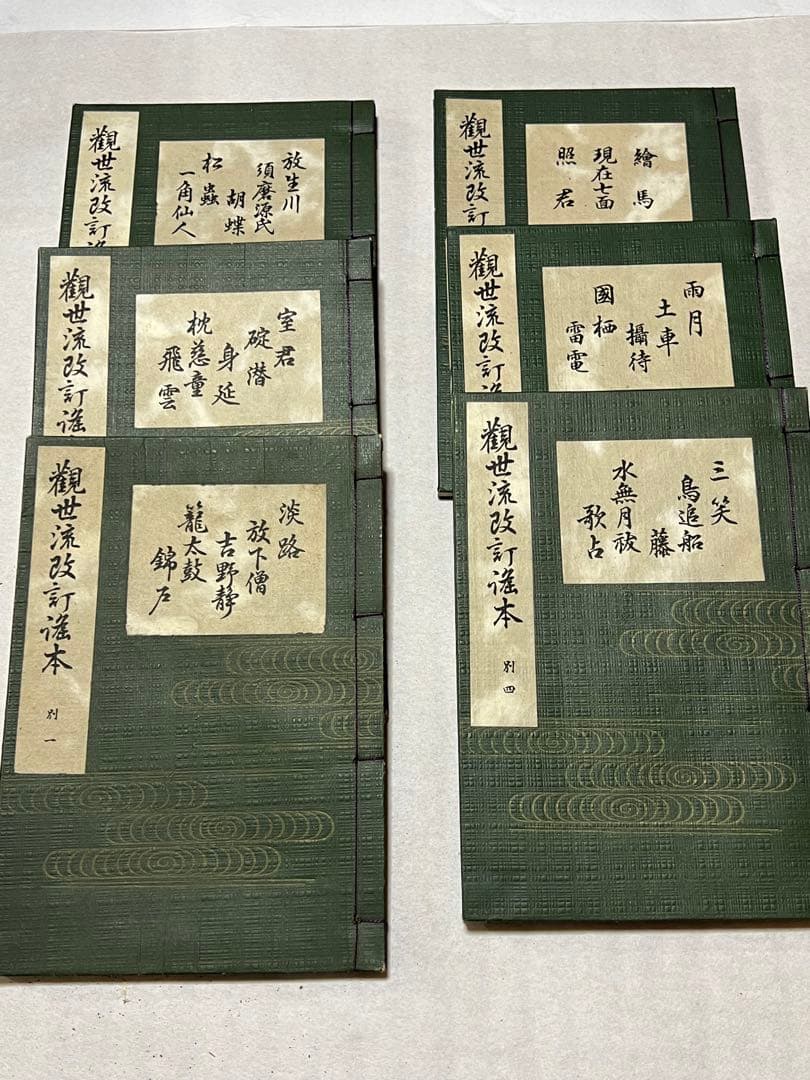 觀世流改訂
放生川
須磨源氏
胡蝶
松蟲
一角仙人
觀世流改訂謡本
室君
碇潜
身延
枕慈童
飛雲
觀世流改訂謡本
別一
淡路
放下僧
吉野静
籠太鼓
錦戸
觀世流改訂
繪馬
現在七面
照君
觀世流改訂
雨月
土車
攝待
國栖
雷電
觀世流改訂謡本
別四
三笑
鳥追船
藤
水無月祓
歌占